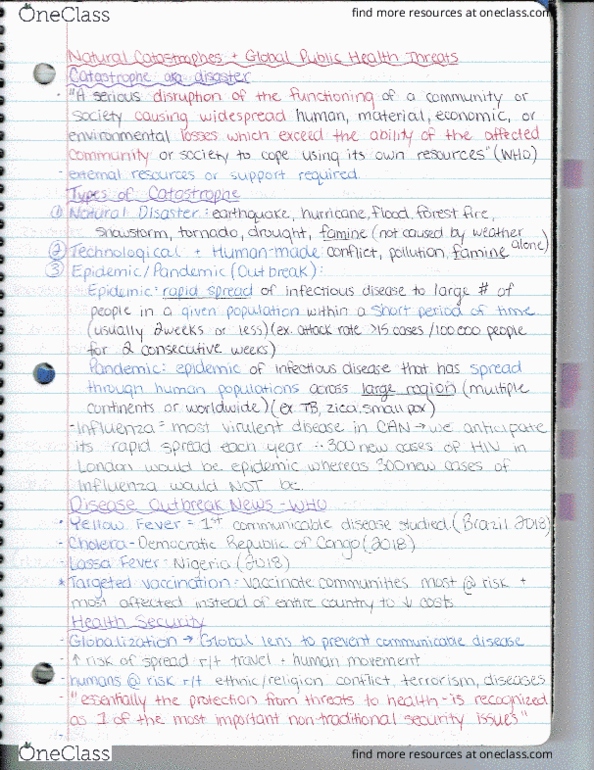 OneClass
find more resources at oneclass.com
Natural Catastrophes + Global Public Health Threats
Catastrophe aka disaster
- "A serious disruption of the functioning of a community or
society causing widespread human, material, economic, or
environmental losses which exceed the ability of the affected
community or society to cope using its own resources" (WHO)
- external resources or support required.
Types of Catastrophe
① Natural Disaster: earthquake, hurricane, flood, forest fire,
snowstorm, tornado, drought, famine (not caused by weather
alone)
② Technological + Human-made conflict, pollution, famine
③ Epidemic/Pandemic (Outbreak):
Epidemic: rapid spread of infectious disease to large # of
people in a given population within a short period of time
(usually 2weeks or less) (ex. attack rate >15 cases /100 000 people
for 2 consecutive weeks)
Pandemic: epidemic of infectious disease that has spread
through human populations across large region (multiple
continents or worldwide) (ex. TB, zica, small pox)
- Influenza = most virulent disease in CAN → we anticipate
its rapid spread each year ∴ 300 new cases of HIV in
London would be epidemic whereas 300 new cases of
Influenza would NOT be.
Disease Outbreak News - WHO
• Yellow Fever = 1st communicable disease studied. (Brazil 2018)
- Cholera - Democratic Republic of Congo (2018)
- Lassa Fever - Nigeria (2018)
* Targeted vaccination - vaccinate communities most @ risk +
most affected instead of entire country to ↓ costs
Health Security
- Globalization → Global lens to prevent communicable disease
- ↑ risk of spread r/t travel + human movement
- humans @ risk r/t ethnic/religion conflict, terrorism, diseases
- "essentially the protection from threats to health - is recognized
as 1 of the most important non-traditional security issues"
OneClass
find more resources at oneclass.com